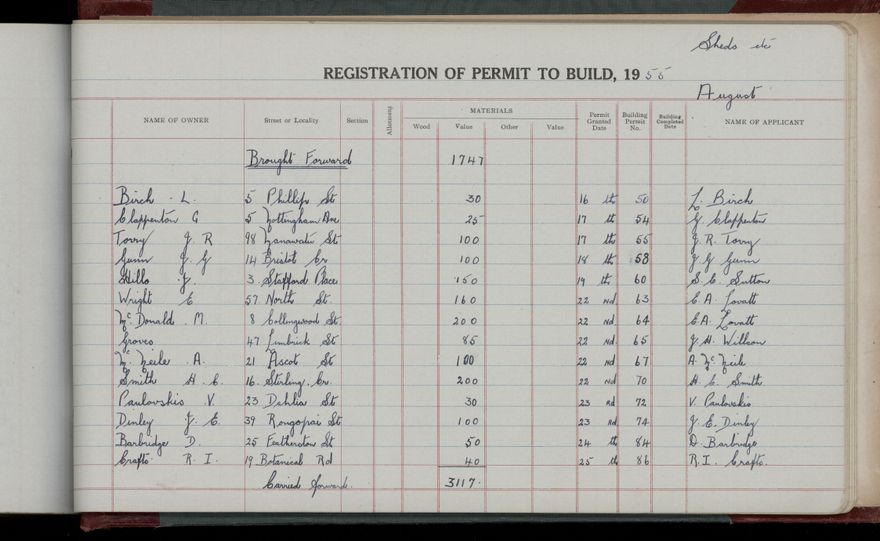 Sheds etc
REGISTRATION OF PERMIT TO BUILD, 1955
August
NAME OF OWNER Street or Locality Section Allotment MATERIALS Permit Granted Date Building Permit No. Building Completed Date NAME OF APPLICANT
Wood Value Other Value
Brought Forward 1747
Birch L. 5 Phillips St 30 16 th 50 L. Birch
Clapperton G 5 Nottingham Ave 25 17 th 54 G. Clapperton
Torry J. R 98 Manawatu St 100 17 th 55 J. R. Torry
Gunn J. G 14 Bristol Cr 100 18 th 58 J. G Gunn
Hills J. 3 Stafford Place 150 19 th 60 S. C. Sutton
Wright E 57 North St. 160 22 nd 63 E A. Lovatt
McDonald M. 8 Collingwood St. 200 22 nd 64 E A. Lovatt
Groves 47 Limbrick St 85 22 nd 65 J. H. Willson
McNeile A. 21 Ascot St 100 22 nd 67 A. McNeile
Smith H. C. 16. Sterling Cr. 200 22 nd 70 H. C. Smith
Paulovskis V 23 Dahlia St 30 23 rd 72 V. Paulovskis
Dinley J. E. 39 Rongopai St 100 23 rd 74 J. E. Dinley
Barbridge D. 25 Featherston St 50 24 th 84 D. Barbridge
Crafts. R. I. 19 Botanical Rd 40 25 th 86 R. I. Crafts.
Carried forward. 3117.